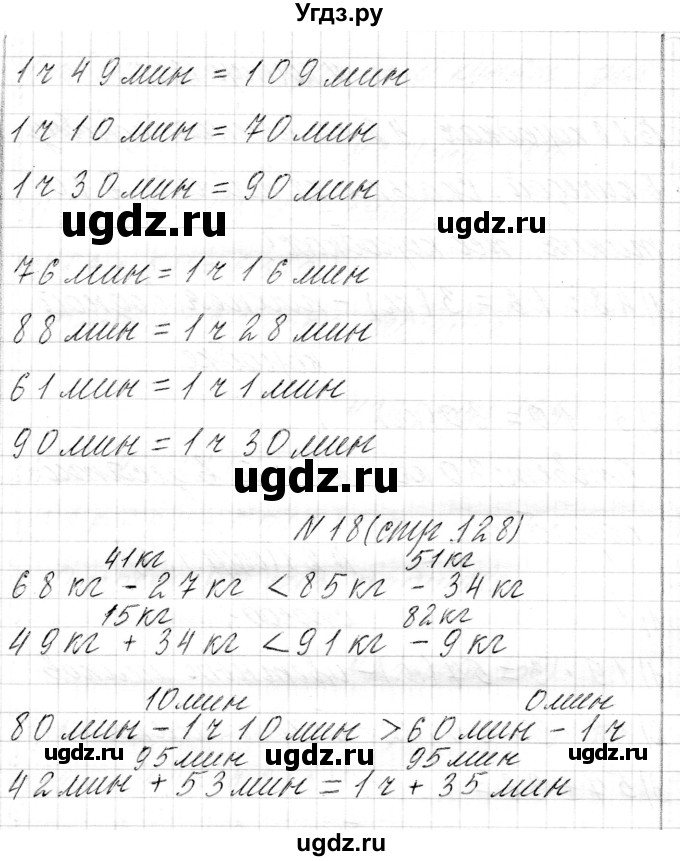 Угдз.ру
1 ч 49 мин = 109 мин
1 ч 10 мин = 70 мин
1 ч 30 мин = 90 мин
ugdz.ru ugdz.ru
76 мин = 1 ч 16 мин
88 мин = 1 ч 28 мин
61 мин = 1 ч 1 мин
90 мин = 1 ч 30 мин
ugdz.ru
N 18 (стр. 128)
41 кг 51 кг
68 кг - 27 кг < 85 кг - 34 кг
15 кг 82 кг
49 кг + 34 кг < 91 кг - 9 кг
10 мин 0 мин
80 мин - 1 ч 10 мин > 60 мин - 1 ч
ugdz.ru 95 мин ugdz.ru 95 мин ugdz.ru
42 мин + 53 мин = 1 ч + 35 мин
ugdz.ru